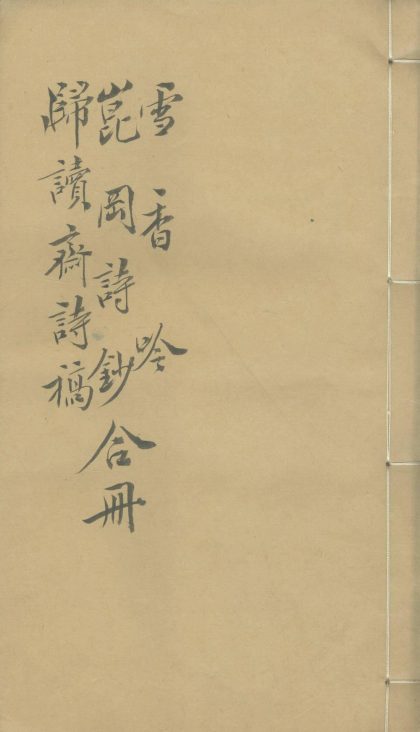 雪香吟
崑岡詩鈔
歸讀齋詩稿
合冊